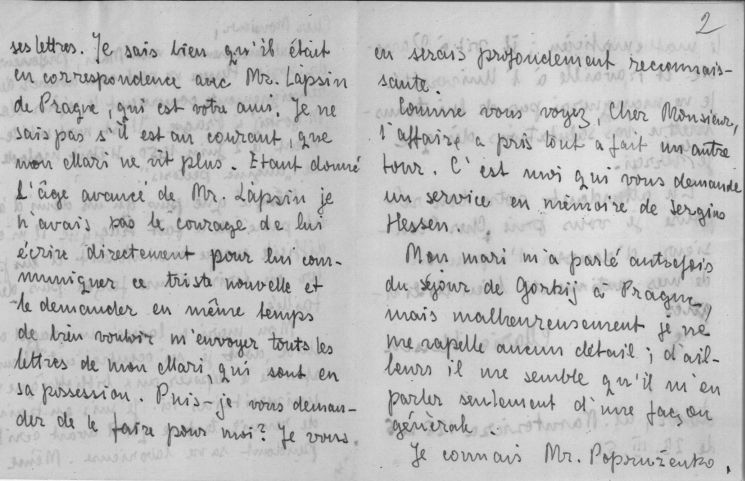 ses lettres. Je sais bien qu'il était
en correspondence avec Mr. Làpsin
de Prague, qui est votre ami. Je ne
sais pas s'il est au courant, que
mon Mari ne vit plus. Étant donné
l'âge avancé de Mr. Làpsin je
n'avais pas le courage de lui
écrire directement pour lui com-
muniquer ce triste nouvelle et
le demander en même temps
de bien vouloir m'envoyer touts les
lettres de mon Mari, qui sont en
sa possession. Puis-je vous deman-
der de le faire pour moi? Je vous
2
en serais profondemant reconnais-
sante.
Comme vous voyez, Cher Monsieur,
l'affaire a pris tout a fait un autre
tour. C'est moi qui vous demande
un service en mémoire de Sergius
Hessen.
Mon mari m'a parlé autrefois
du séjour de Gorkij à Prague,
mais malheureusement je ne
me rapelle aucun détail; d'ail-
leurs il me semble qu'il m'en
parler seulement d'une façon
générale.
Je connais Mr.